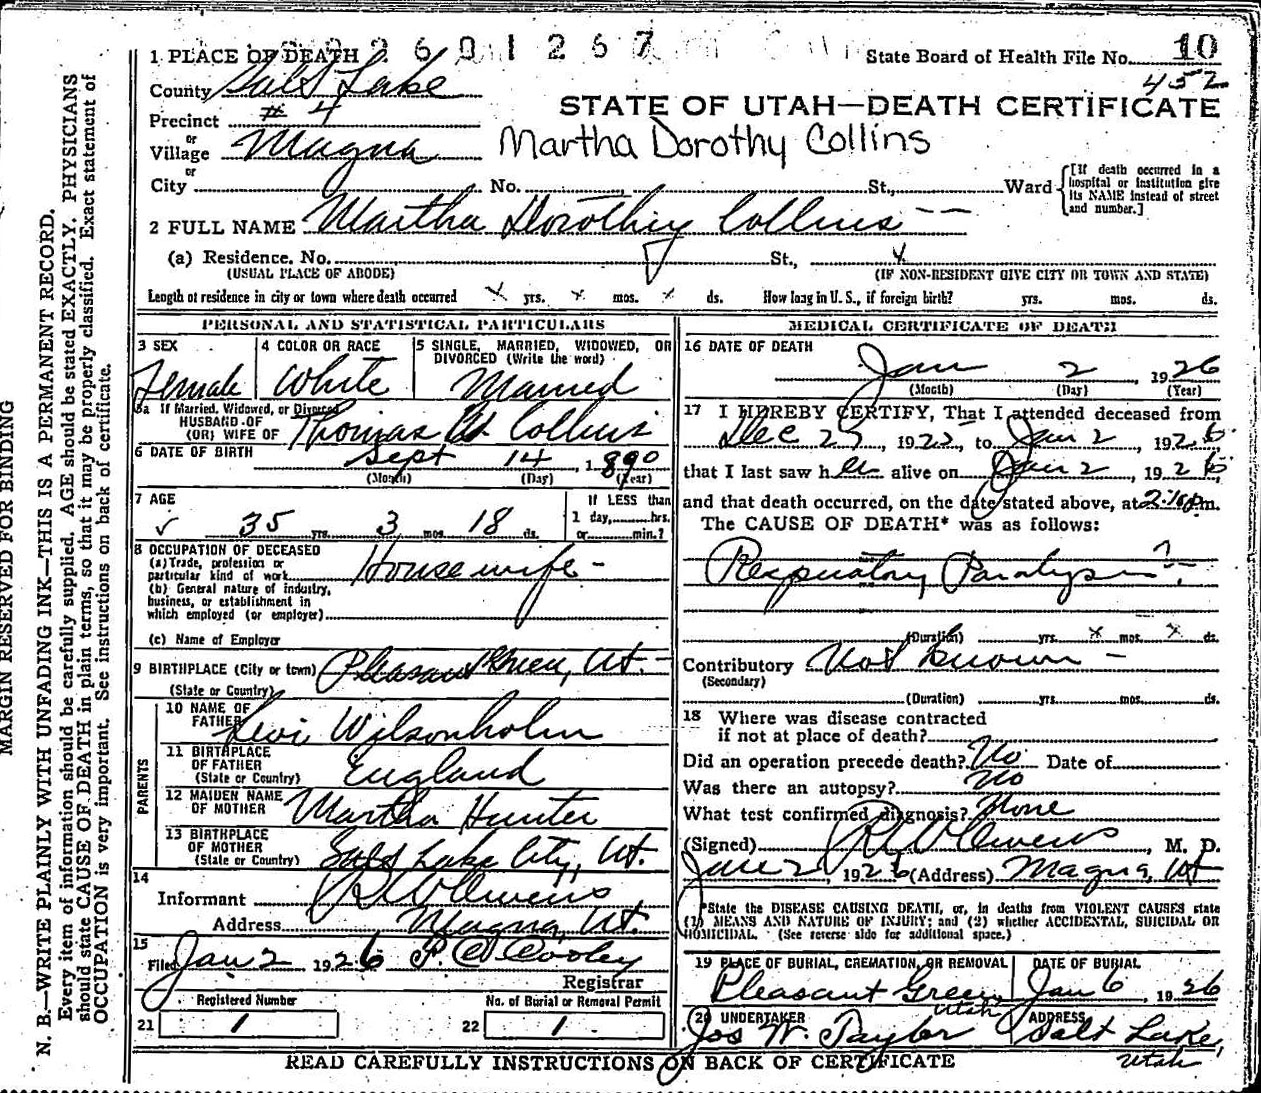 2601267
1 PLACE OF DEATH
State Board of Health File No. 10
452
County Salt Lake
Precinct # 4
or
Village Magna
or
City No. St., Ward
[If death occurred in a hospital or institution give its NAME instead of street and number.]
STATE OF UTAH—DEATH CERTIFICATE
Martha Dorothy Collins
2 FULL NAME Martha Dorothy Collins
(a) Residence. No. St.,
(USUAL PLACE OF ABODE) (IF NON-RESIDENT GIVE CITY OR TOWN AND STATE)
Length of residence in city or town where death occurred x yrs. x mos. x ds. How long in U. S., if foreign birth? yrs. mos. ds.
PERSONAL AND STATISTICAL PARTICULARS
3 SEX
Female
4 COLOR OR RACE
White
5 SINGLE, MARRIED, WIDOWED, OR DIVORCED (Write the word)
Married
5a If Married, Widowed, or Divorced
HUSBAND OF
(OR) WIFE OF Thomas W. Collins
6 DATE OF BIRTH Sept 14, 1890
(Month) (Day) (Year)
7 AGE
35 yrs. 3 mos. 18 ds.
If LESS than
1 day, hrs.
or min.?
8 OCCUPATION OF DECEASED
(a) Trade, profession or
particular kind of work Housewife -
(b) General nature of industry,
business, or establishment in
which employed (or employer)
(c) Name of Employer
9 BIRTHPLACE (City or town) Pleasant Green, Ut. -
(State or Country)
PARENTS
10 NAME OF
FATHER Levi Wilsonholm
11 BIRTHPLACE
OF FATHER England
(State or Country)
12 MAIDEN NAME
OF MOTHER Martha Hunter
13 BIRTHPLACE
OF MOTHER
(State or Country) Salt Lake City, Ut.
14
Informant Owens
Address Magna, Ut.
15
Filed Jan 2 1926 Cooley
Registrar
Registered Number
21 1
No. of Burial or Removal Permit
22 1
MEDICAL CERTIFICATE OF DEATH
16 DATE OF DEATH
Jan 2, 1926
(Month) (Day) (Year)
17 I HEREBY CERTIFY, That I attended deceased from
Dec , 192 , to Jan 2, 1926
that I last saw her alive on Jan 2, 1926,
and that death occurred, on the date stated above, at m.
The CAUSE OF DEATH* was as follows:
Respiratory Paralysis ?
(Duration) yrs. x mos. x ds.
Contributory Not Known -
(Secondary)
(Duration) yrs. mos. ds.
18 Where was disease contracted
if not at place of death?
Did an operation precede death? No Date of
Was there an autopsy? No
What test confirmed diagnosis? None
(Signed) Owens, M. D.
Jan 2, 1926 (Address) Magna, Ut
*State the DISEASE CAUSING DEATH, or, in deaths from VIOLENT CAUSES state
(1) MEANS AND NATURE OF INJURY; and (2) whether ACCIDENTAL, SUICIDAL OR
HOMICIDAL. (See reverse side for additional space.)
19 PLACE OF BURIAL, CREMATION, OR REMOVAL
Pleasant Green, Utah
DATE OF BURIAL
Jan 6, 1926
20 UNDERTAKER
Jos W. Taylor
ADDRESS
Salt Lake, Utah
READ CAREFULLY INSTRUCTIONS ON BACK OF CERTIFICATE
MARGIN RESERVED FOR BINDING
N. B.—WRITE PLAINLY WITH UNFADING INK—THIS IS A PERMANENT RECORD.
Every item of information should be carefully supplied. AGE should be stated EXACTLY. PHYSICIANS
should state CAUSE OF DEATH in plain terms, so that it may be properly classified. Exact statement of
OCCUPATION is very important. See instructions on back of certificate.